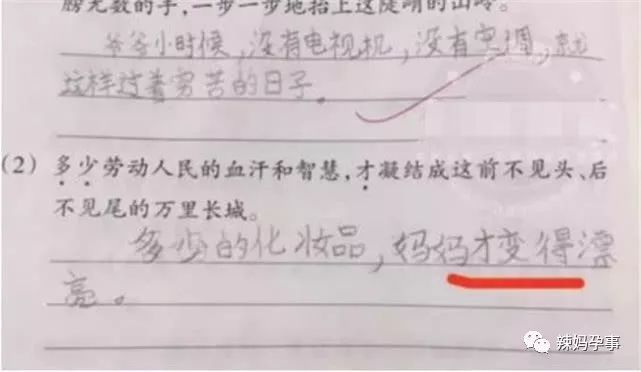 膀无数的手,一步一步地抬上这陡峭的山岭。
爷爷小时候,没有电视机,没有空调,就
这样过着穷苦的日子。
(2) 多少劳动人民的血汗和智慧,才凝结成这前不见头、后
不见尾的万里长城。
多少的化妆品,妈妈才变得漂
亮。
辣妈孕事